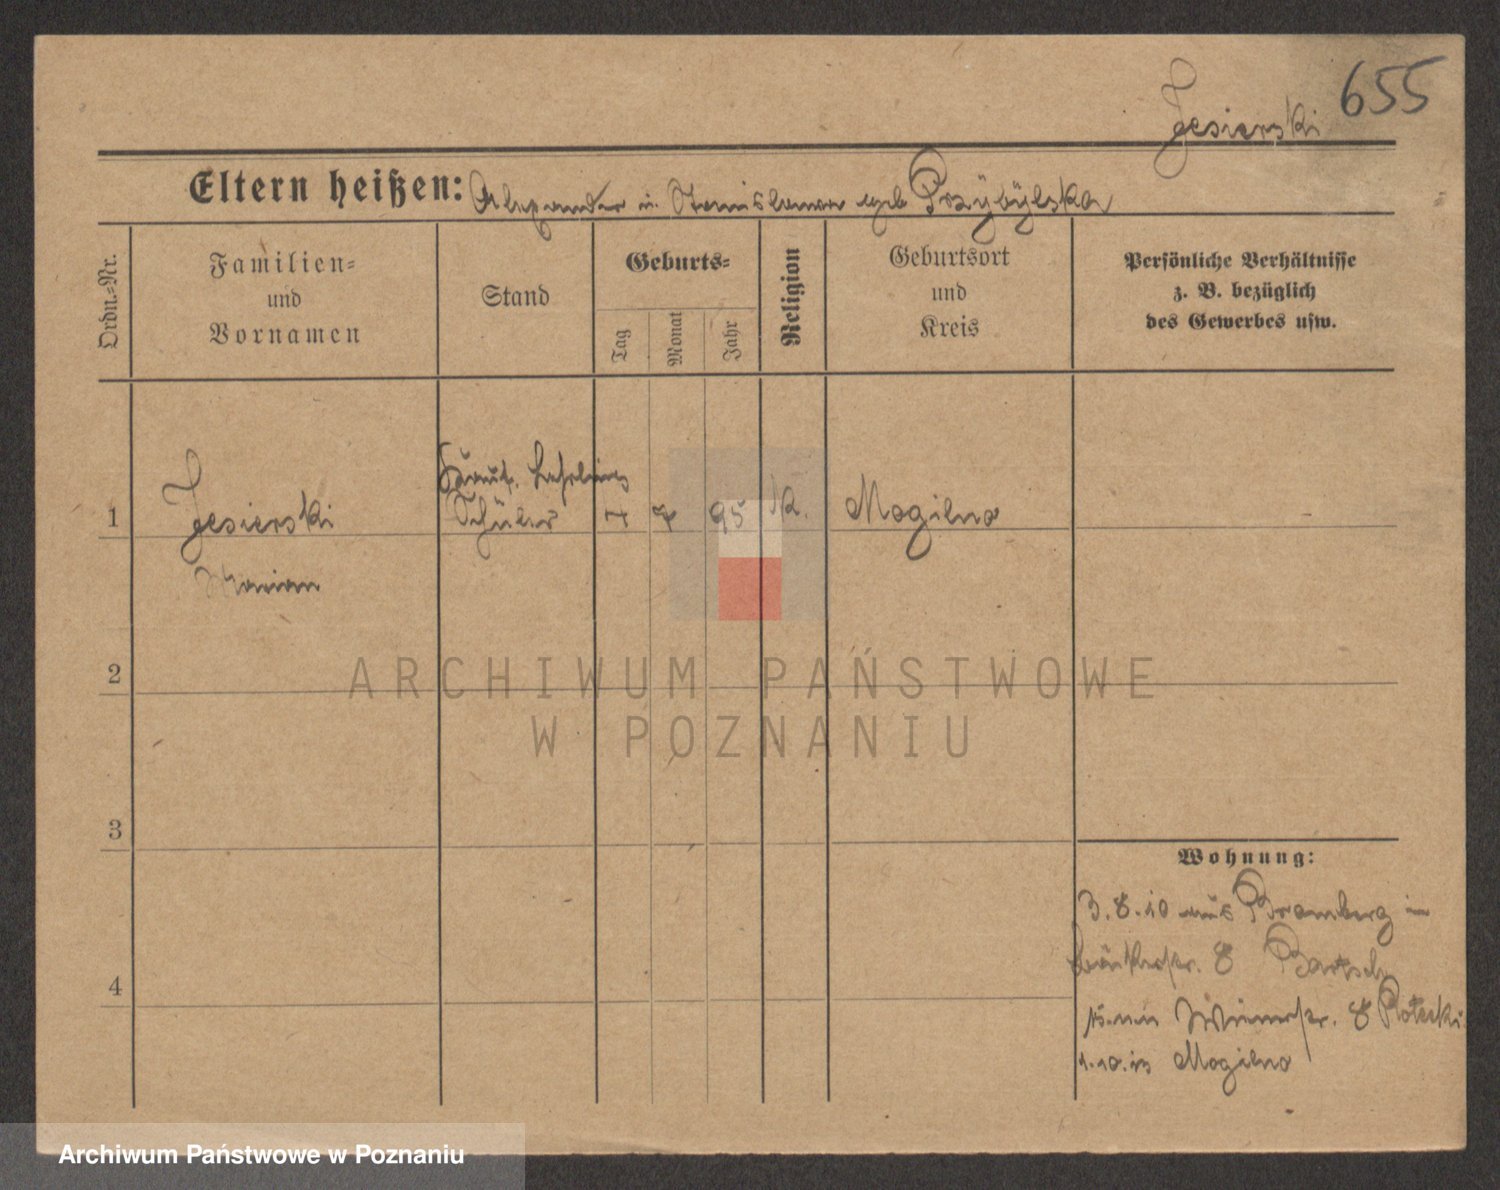 655
Jesierski
Eltern heißen: Alexander u. Stanislawa geb Przÿbÿlska
Ordn.=Nr.
Familien=
und
Vornamen
Stand
Geburts=
Tag
Monat
Jahr
Religion
Geburtsort
und
Kreis
Persönliche Verhältnisse
z. B. bezüglich
des Gewerbes usw.
Lehrling
1 Jesierski Schüler 7 95 K. Mogilno
Marian
2
3
4
Wohnung:
3.8.10 aus Bromberg in
8 Bartsch
8
1.10. Mogilno
ARCHIWUM PAŃSTWOWE
W POZNANIU
Archiwum Państwowe w Poznaniu